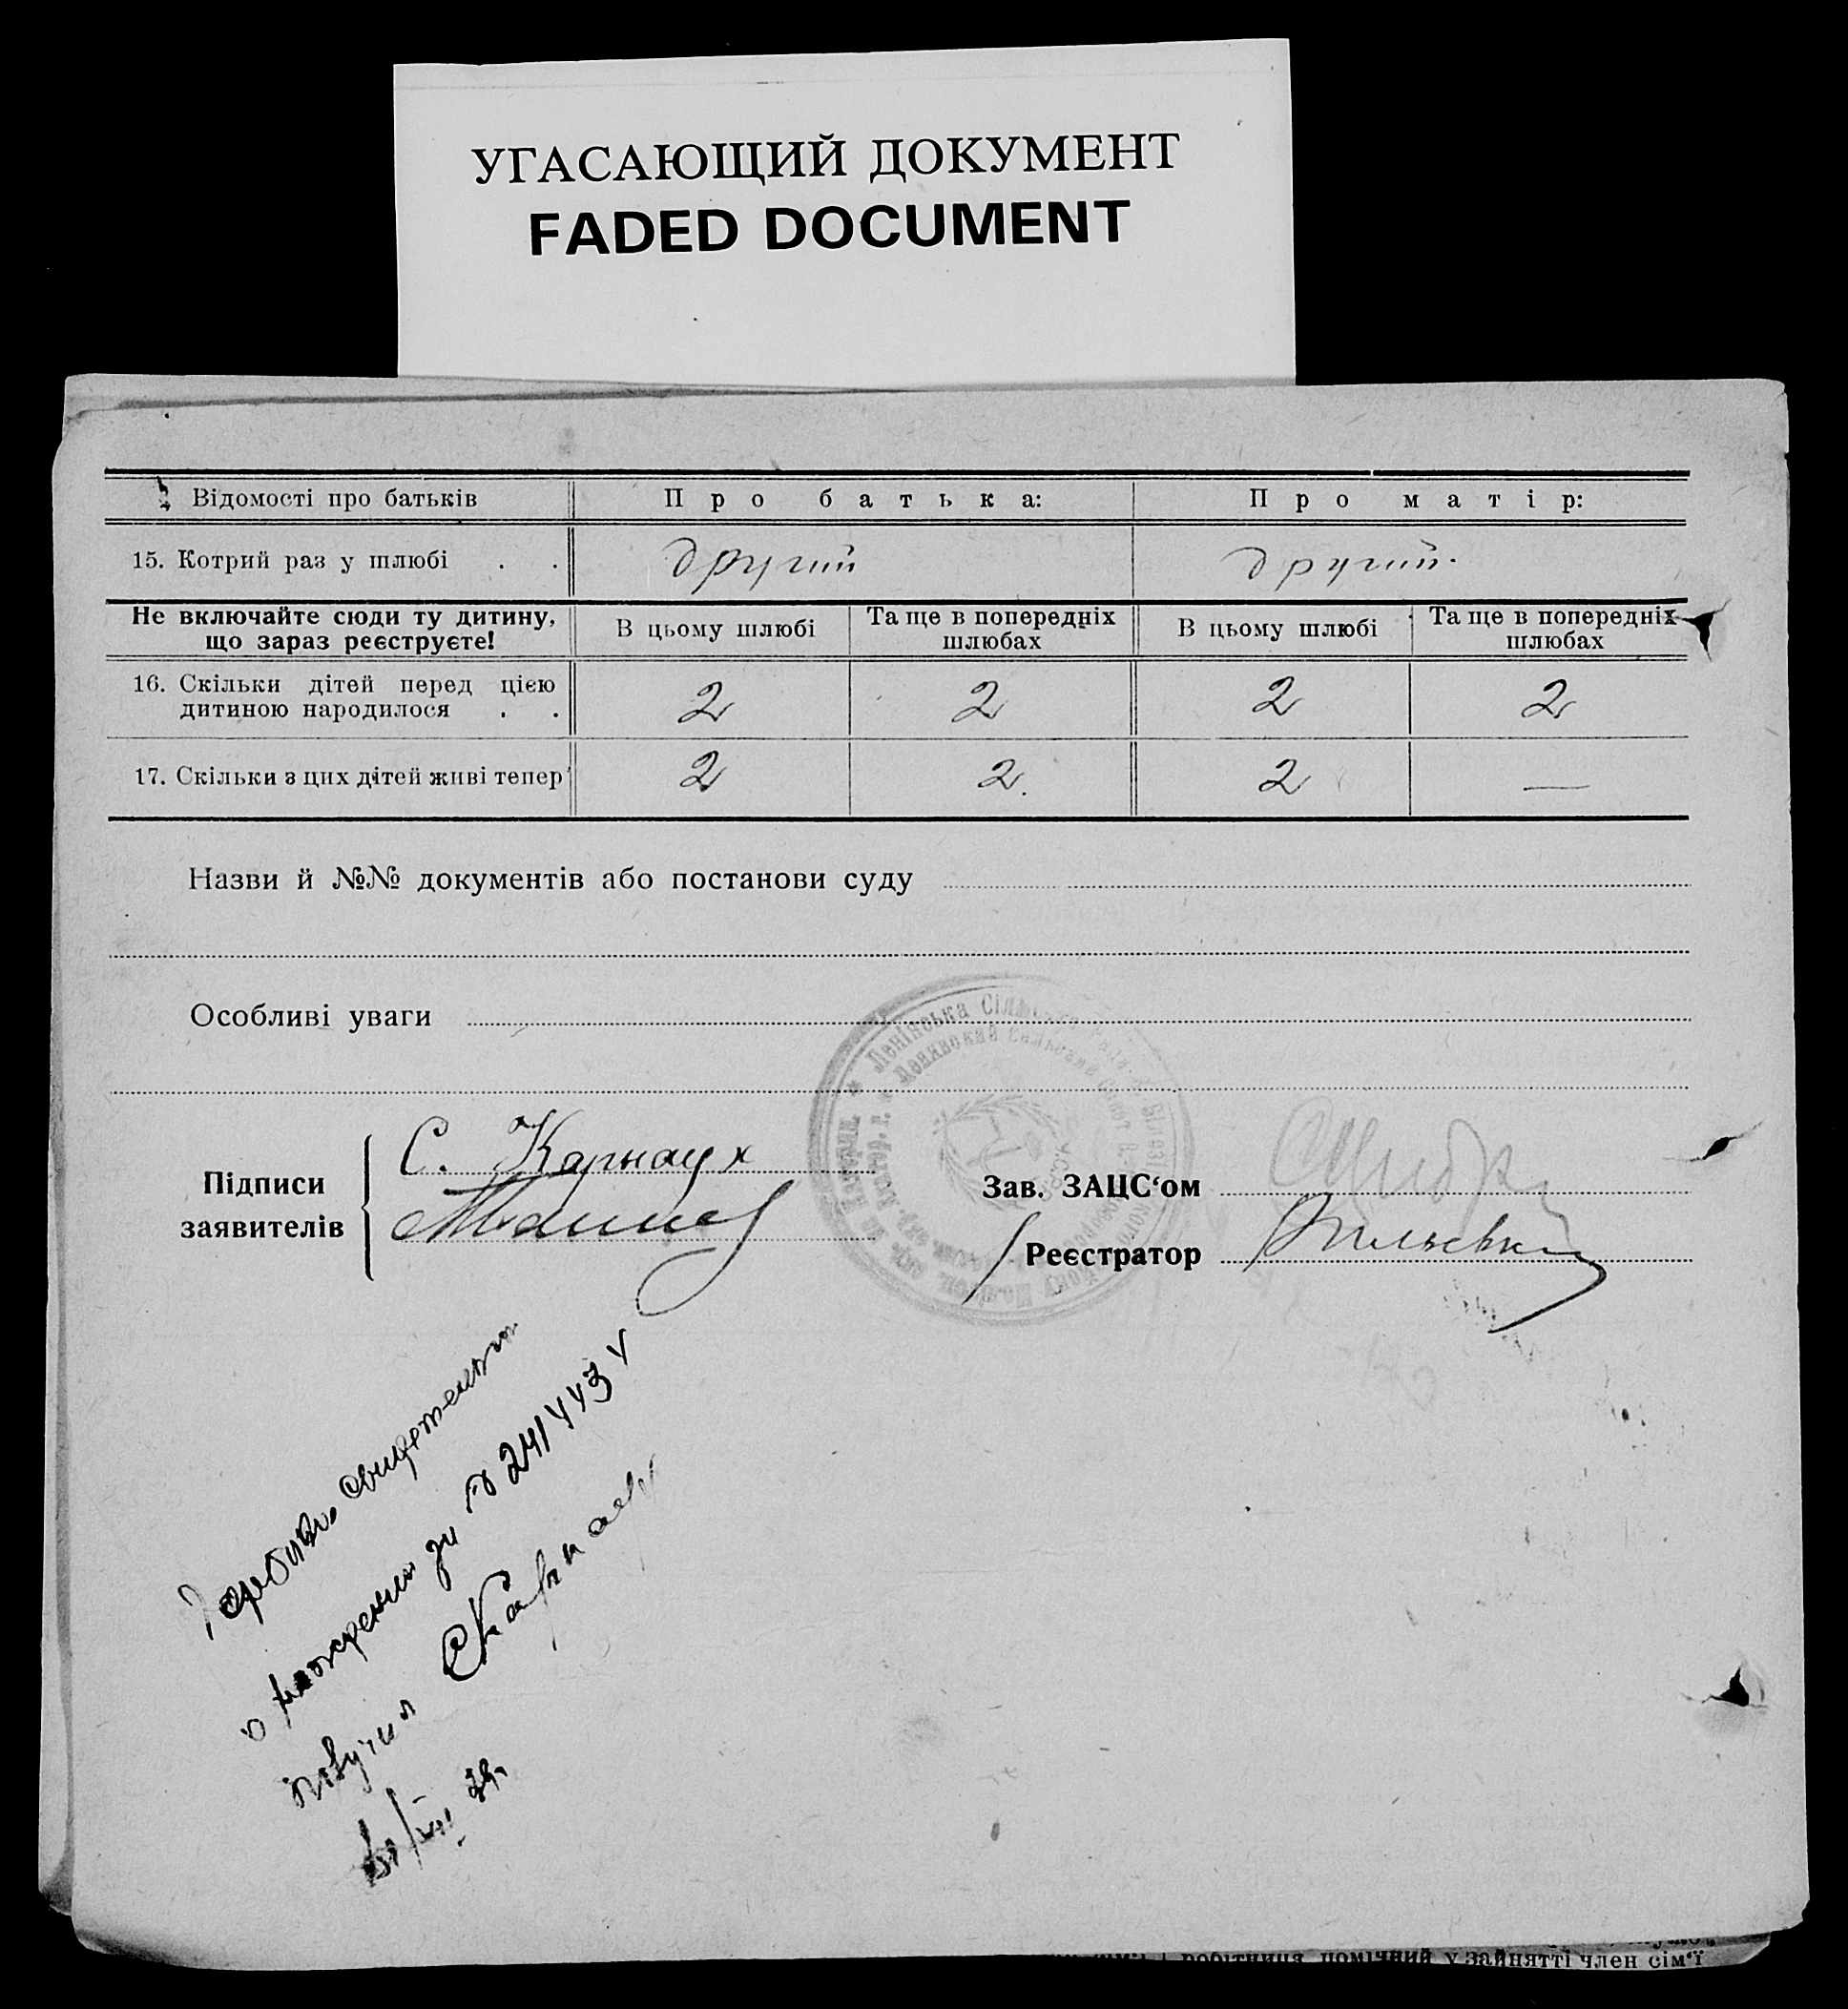 УГАСАЮЩИЙ ДОКУМЕНТ
FADED DOCUMENT
Відомості про батьків Про батька: Про матір:
15. Котрий раз у шлюбі . . другий другий.
Не включайте сюди ту дитину, що зараз реєструєте! В цьому шлюбі Та ще в попередніх шлюбах В цьому шлюбі Та ще в попередніх шлюбах
16. Скільки дітей перед цією
дитиною народилося . . 2 2 2 2
17. Скільки з цих дітей живі тепер 2 2. 2 —
Назви й №№ документів або постанови суду
Особливі уваги
Ленінська Сільська
Ленинский Сельский
Підписи заявителів
С. Карнаух
Зав. ЗАЦС‘ом
Реєстратор
о рождении за № 241443
получил СКарнаух
робітниця, помічний у занятті член сім‘ї